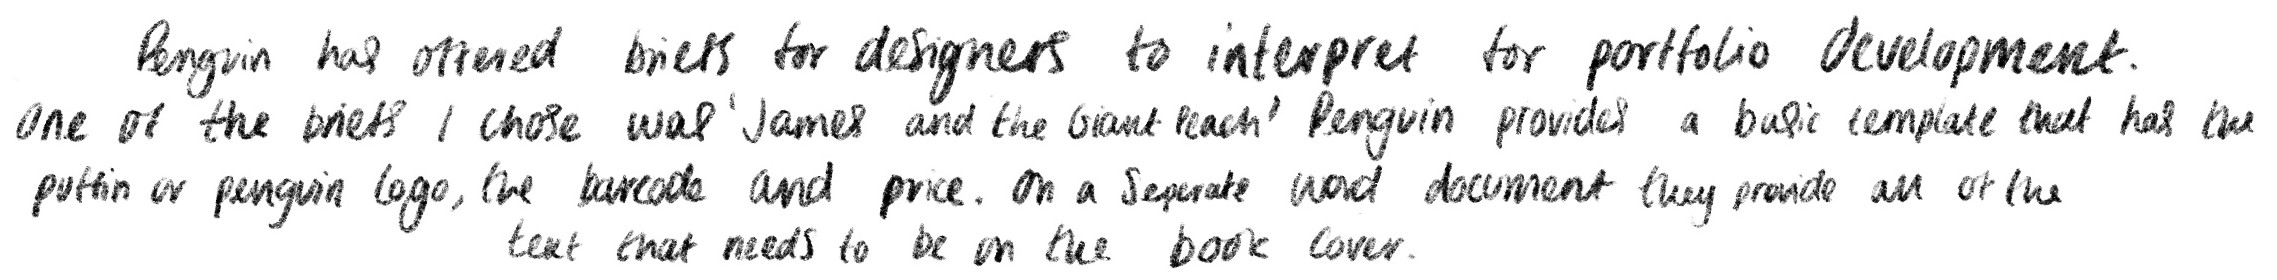 Penguin has offered briefs for designers to interpret for portfolio development.
One of the briefs I chose was 'James and the Giant Peach' Penguin provides a basic template that has the
puffin or penguin logo, the barcode and price. On a Seperate word document they provide all of the
text that needs to be on the book cover.